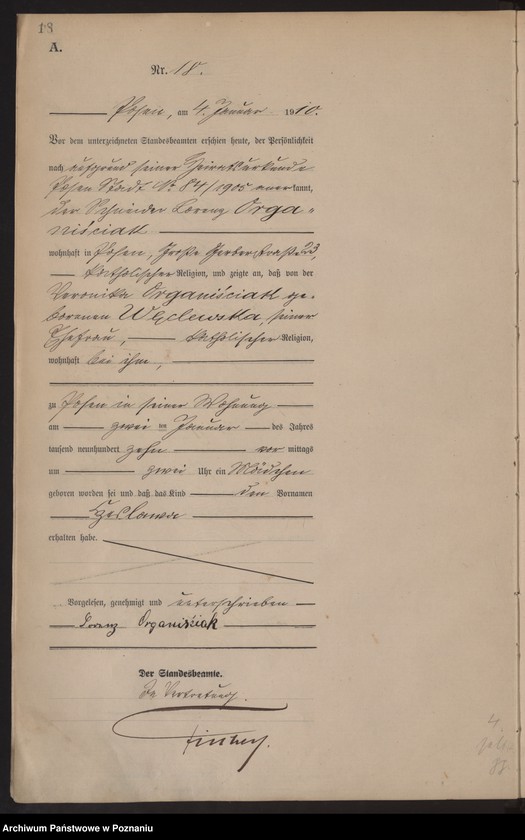 18
A.
Nr. 18.
Posen, am 4. Januar 1910.
Vor dem unterzeichneten Standesbeamten erschien heute, der Persönlichkeit
nach aufgrund seiner Heiratsurkunde
Posen Stadt No 84/1905 anerkannt,
der Schneider Lorenz Orga-
niściak
wohnhaft in Posen, Große Gerberstraße 23,
katholischer Religion, und zeigte an, daß von der
Veronika Organiściak ge-
borenen Węclewska, seiner
Ehefrau, katholischer Religion,
wohnhaft bei ihm,
zu Posen in seiner Wohnung
am zwei ten Januar des Jahres
tausend neunhundert zehn vor mittags
um zwei Uhr ein Mädchen
geboren worden sei und daß das Kind den Vornamen
Czeslawa
erhalten habe.
Vorgelesen, genehmigt und unterschrieben
Lorenz Organiściak
Der Standesbeamte.
In Vertretung.
4.
83
Archiwum Państwowe w Poznaniu